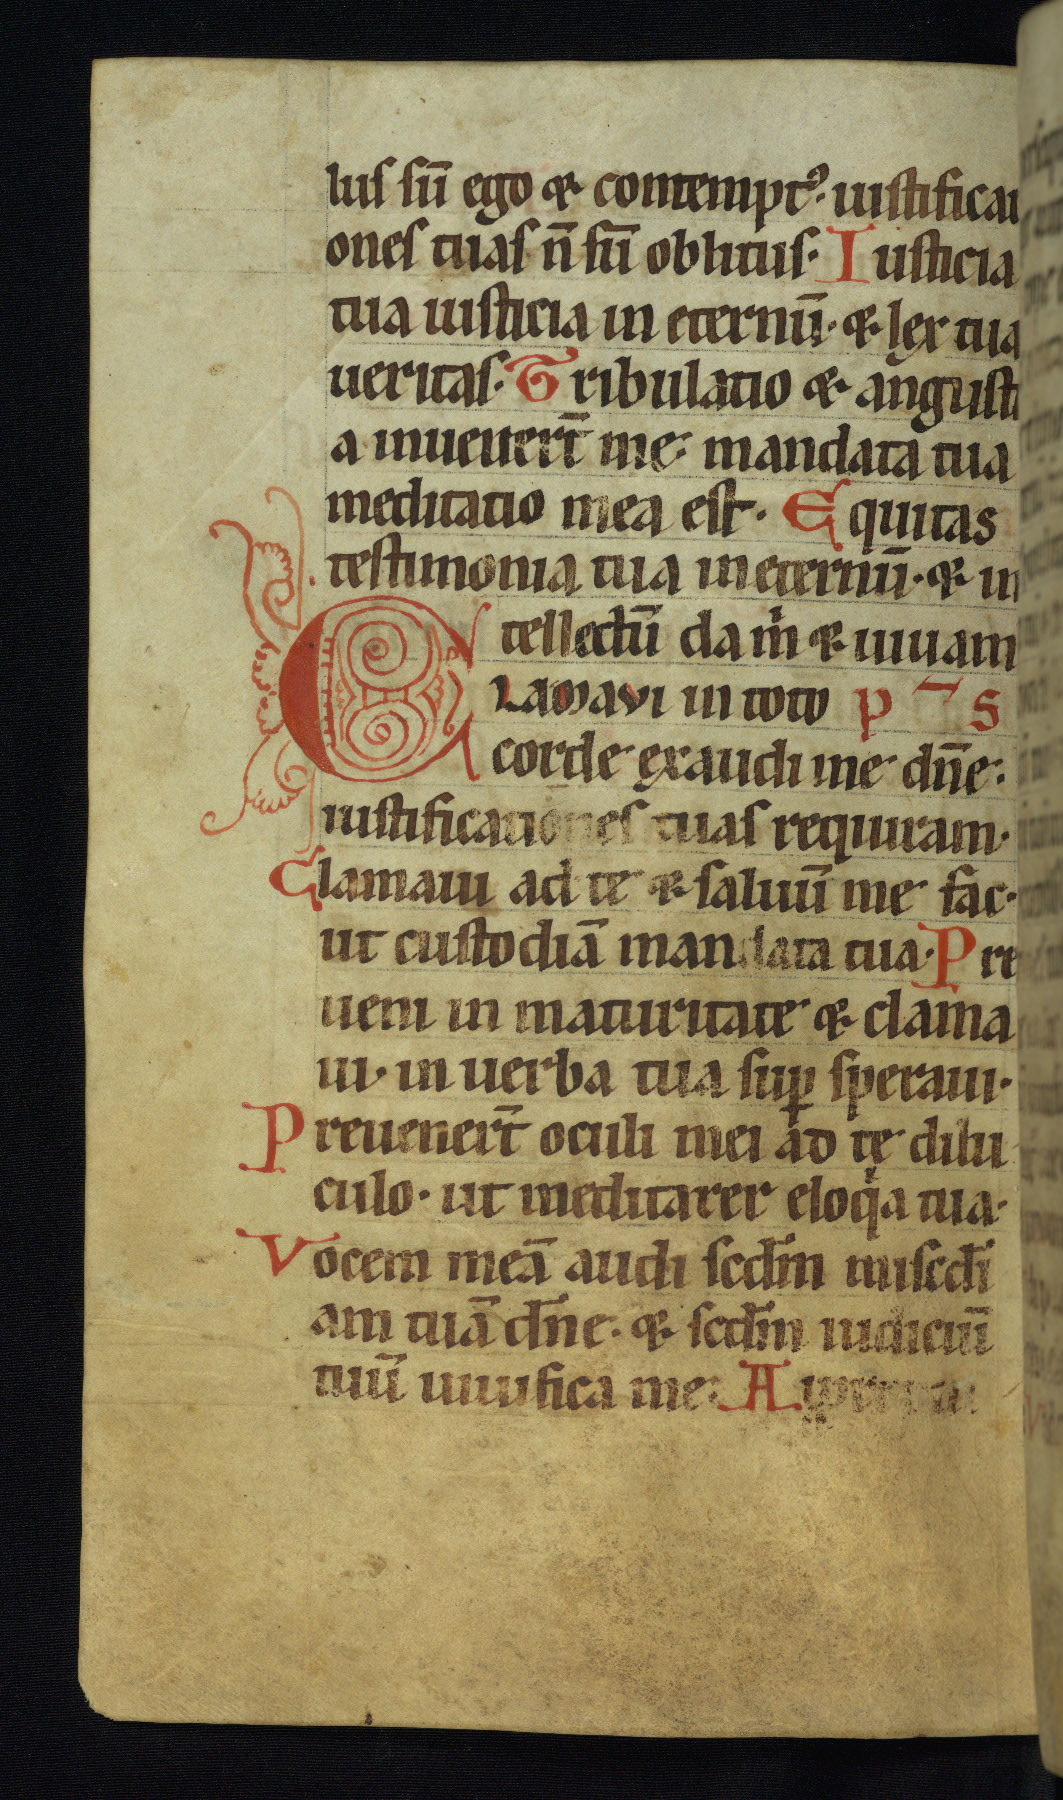 lus sū ego & contemptꝰ· iustificati
ones tuas n̄ sū oblitus· Iusticia
tua iusticia in eternū· & lex tua
ueritas· Tribulatio & angusti
a inuenert̄ me· mandata tua
meditatio mea est· Equitas
testimonia tua in eternū· & in
tellectū da m̄ & uiuam
Clamavi in toto p s
corde exaudi me dn̄e·
iustificationes tuas requiram·
Clamaui ad te & saluū me fac·
ut custodiā mandata tua· Pre
ueni in maturitate & clama
ui· in uerba tua suꝑ speraui·
Preuenert̄ oculi mei ad te dilu
culo· ut meditarer eloqͥa tua·
Vocem meā audi scdm̄ miscd̄i
am tuā dn̄e· & scdm̄ iudiciū
tuū uiuifica me· A